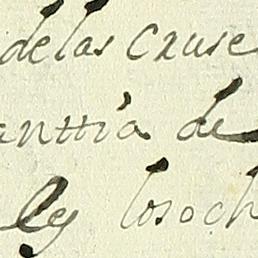 delas cruse
anttia de
ley losoch